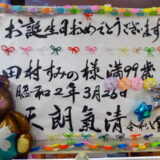 お誕生日おめでとうございます
田村すみの様満99歳
昭和2年3月26日
天朗氣清